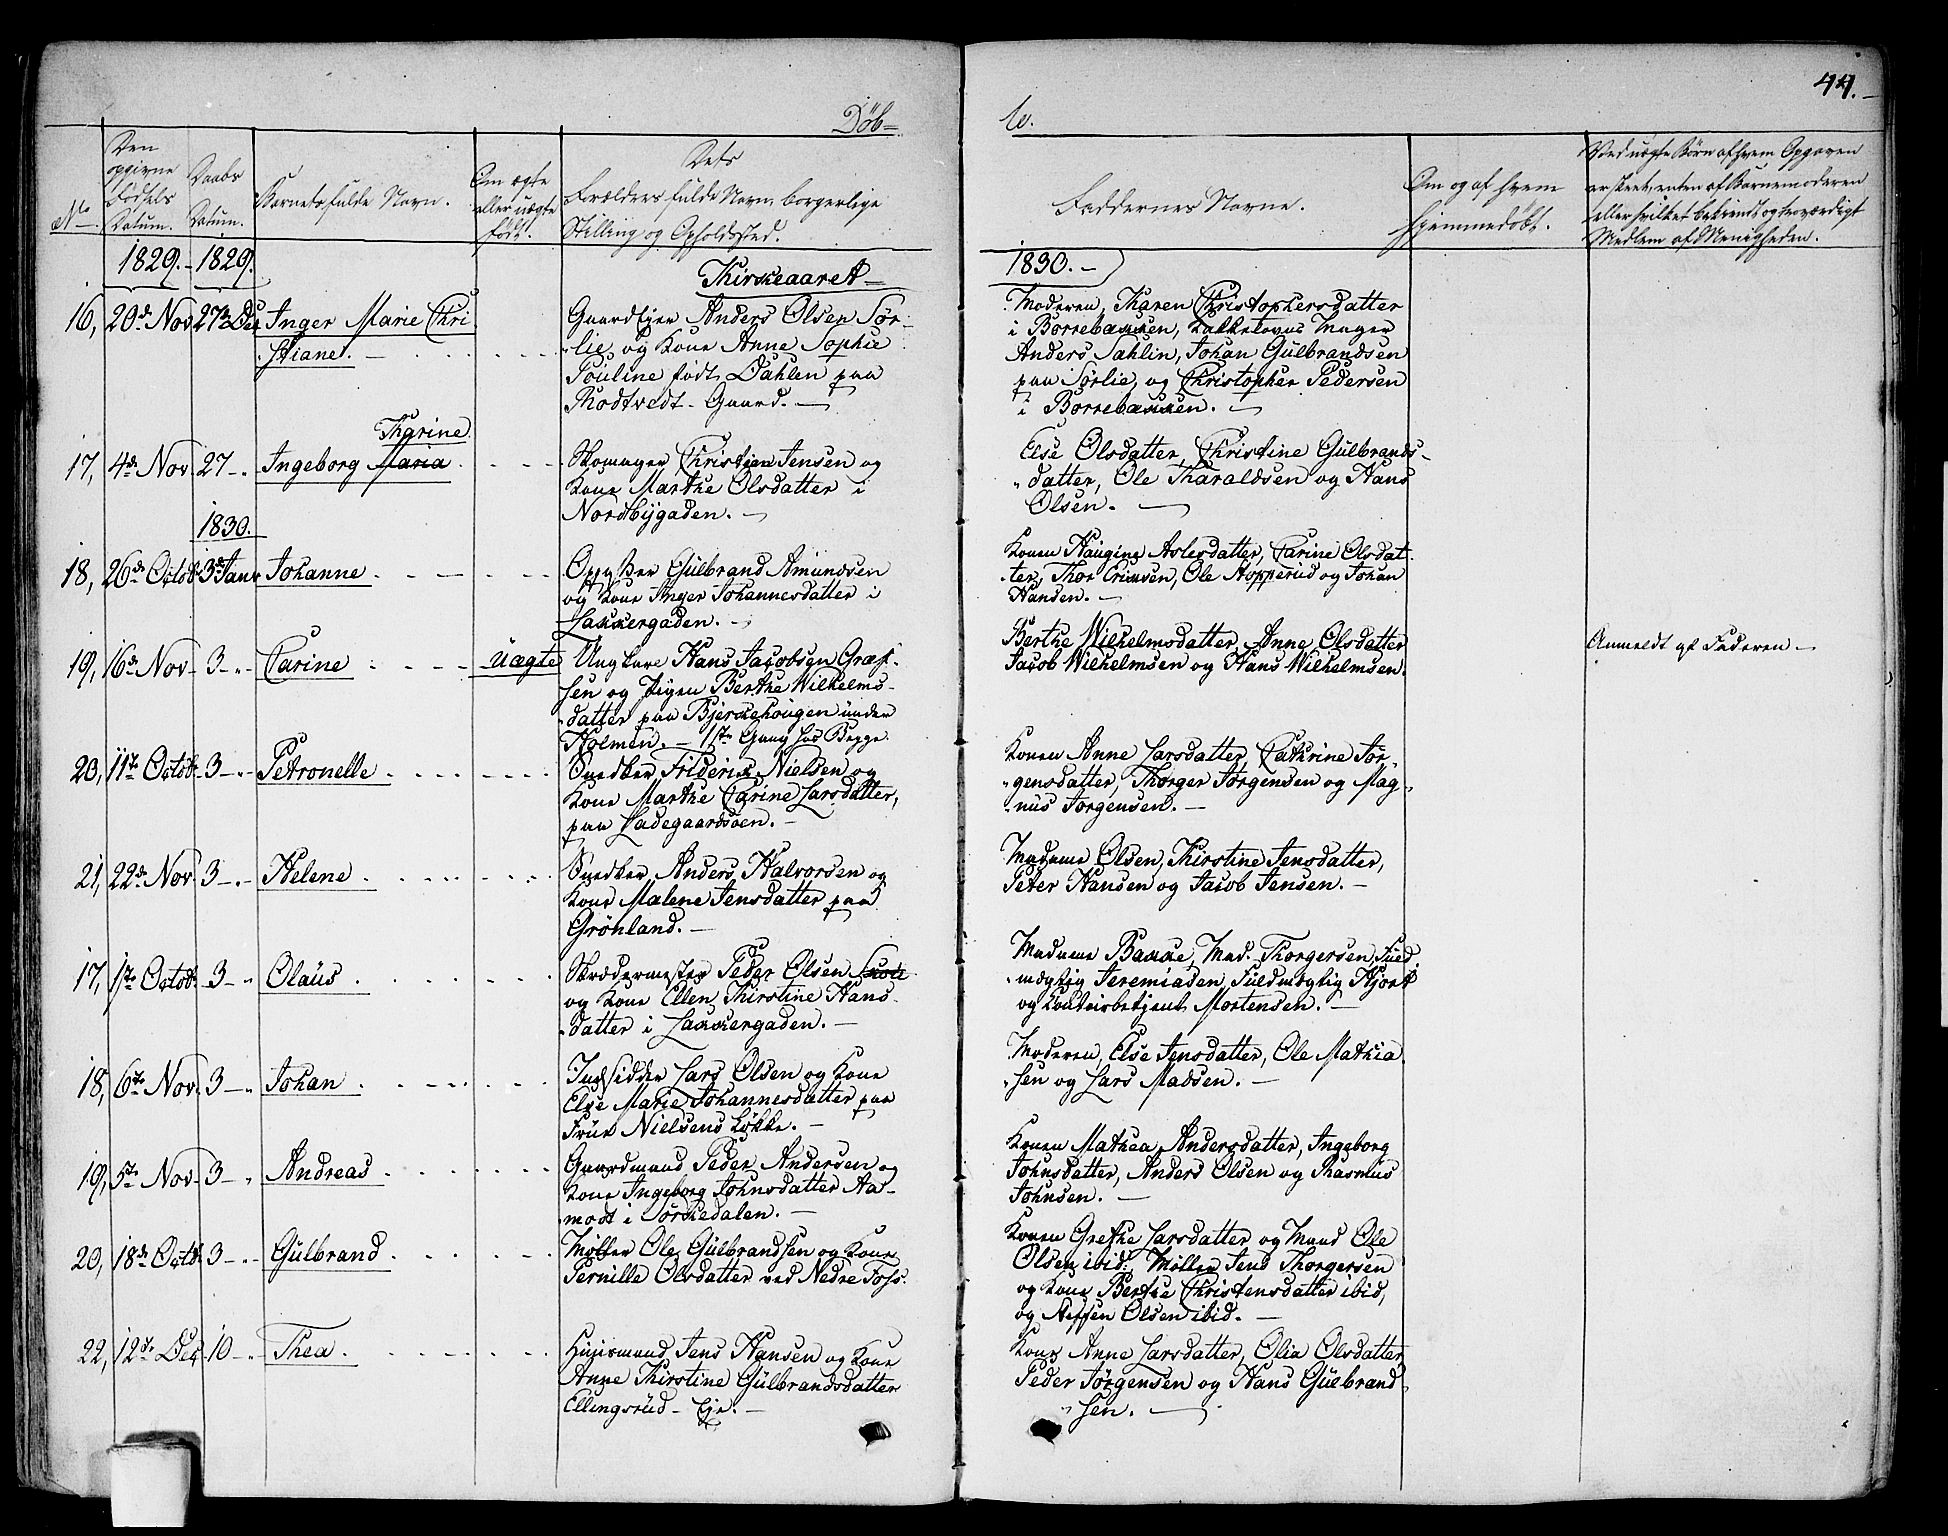 Döb=
te.
44.
No
Den opgivne Födsels Datum.
Daabs Datum.
Barnets fulde Navn.
Om ægte eller uægte født.
Dets Forældres fulde Navn, borgerlige Stilling og Opholdssted.
Faddernes Navne.
Om og af hvem hjemmedøbt.
Ved uægte Børn af hvem Opgaven
er skeet, enten af Barnemoderen
eller hvilket bekiendt og troværdigt
Medlem af Menigheden.
1829. - 1829.
Kirkeaaret
1830.
16, 20de Nov 27de Dec Inger Marie Chri
stiane.
Gaardejer Anders Olsen Sør-
lie og Kone Anne Sophie
Pouline født Dahlen paa
Rodtvedt Gaard.
Moderen, Karen Christophersdatter
i Borrebækken, Kakkelovns Mager
Anders Sahlin, Johan Gulbrandsen
paa Sørlie, og Christopher Pedersen
i Borrebækken.
Karine
17, 4de Nov 27 Ingeborg Maria
Skomager Christian Jensen og
Kone Marthe Olsdatter i
Nordbygaden.
Else Olsdatter, Christine Gulbrands-
datter, Ole Tharaldsen og Hans
Olsen.
1830.
18, 26de Octob. 3de Janr Johanne
Opsyher Gulbrand Amundsen
og Kone Inger Johannesdatter i
Lakkergaden.
Konen Haugine Aslesdatter, Carine Olsdat-
ter, Thor Ericksen, Ole Hopperud og Johan
Hansen.
19, 16de Nov 3 Carine
uægte
Ungkarl Hans Jacobsen Græf-
sen og Pigen Berthe Wilhelms-
datter paa Bjerkehougen under
Holmen. 1ste Gang hos Begge
Berthe Wilhelmsdatter, Anne Olsdatter
Jacob Wilhelmsen og Hans Wilhelmsen.
Anmeldt af Faderen
20, 11te Octob. 3 Petronelle
Snedker Friderik Nielsen og
Kone Marthe Carine Larsdatter,
paa Ladegaardsøen.
Konen Anne Larsdatter, Cathrine Jör-
gensdatter, Thorger Jorgensen og Mag-
nus Jorgensen.
21, 22de Nov 3 Helene
Snedker Anders Halvorsen og
Kone Malene Jensdatter paa
Grönland.
Madame Olsen, Kirstine Jensdatter,
Peter Hansen og Jacob Jensen.
17, 1te Octob. 3 Olaus
Skrædermester Peder Olsen
og Kone Ellen Kirstine Hans-
datter i Lakkergaden.
Madame Bakke, Mad. Thorgersen, Fuld-
mægtig Jeremiaden, Fuldmægtig Hjort
og Contoirbetjent Mortensen.
18, 6te Nov. 3 Johan
Indsidder Lars Olsen og Kone
Else Marie Johannesdatter paa
Frue Nielsens Løkke.
Moderen, Else Jensdatter, Ole Mathia-
sen og Lars Madsen.
19, 5te Nov. 3 Andreas
Gaardmand Peder Andersen og
Kone Ingeborg Johnsdatter Aa-
modt i Sörkedalen.
Konen Mathea Andersdatter, Ingeborg
Johnsdatter, Anders Olsen og Rasmus
Johnsen.
20, 18de Octob. 3 Gulbrand
Møller Ole Gulbrandsen og Kone
Pernille Olsdatter ved Nedre Foss.
Konen Grethe Larsdatter og Mand Ole
Olsen ibid:, Møller Jens Thorgersen
og Kone Berthe Christensdatter ibid,
og Steffen Olsen ibid.
22, 12te Dec. 10 Thea
Huusmand Jens Hansen og Kone
Anne Kirstine Gulbrandsdatter
Ellingsrud Eje.
Kone Anne Larsdatter, Olia Olsdatter
Peder Jörgensen og Hans Gulbrand-
sen.